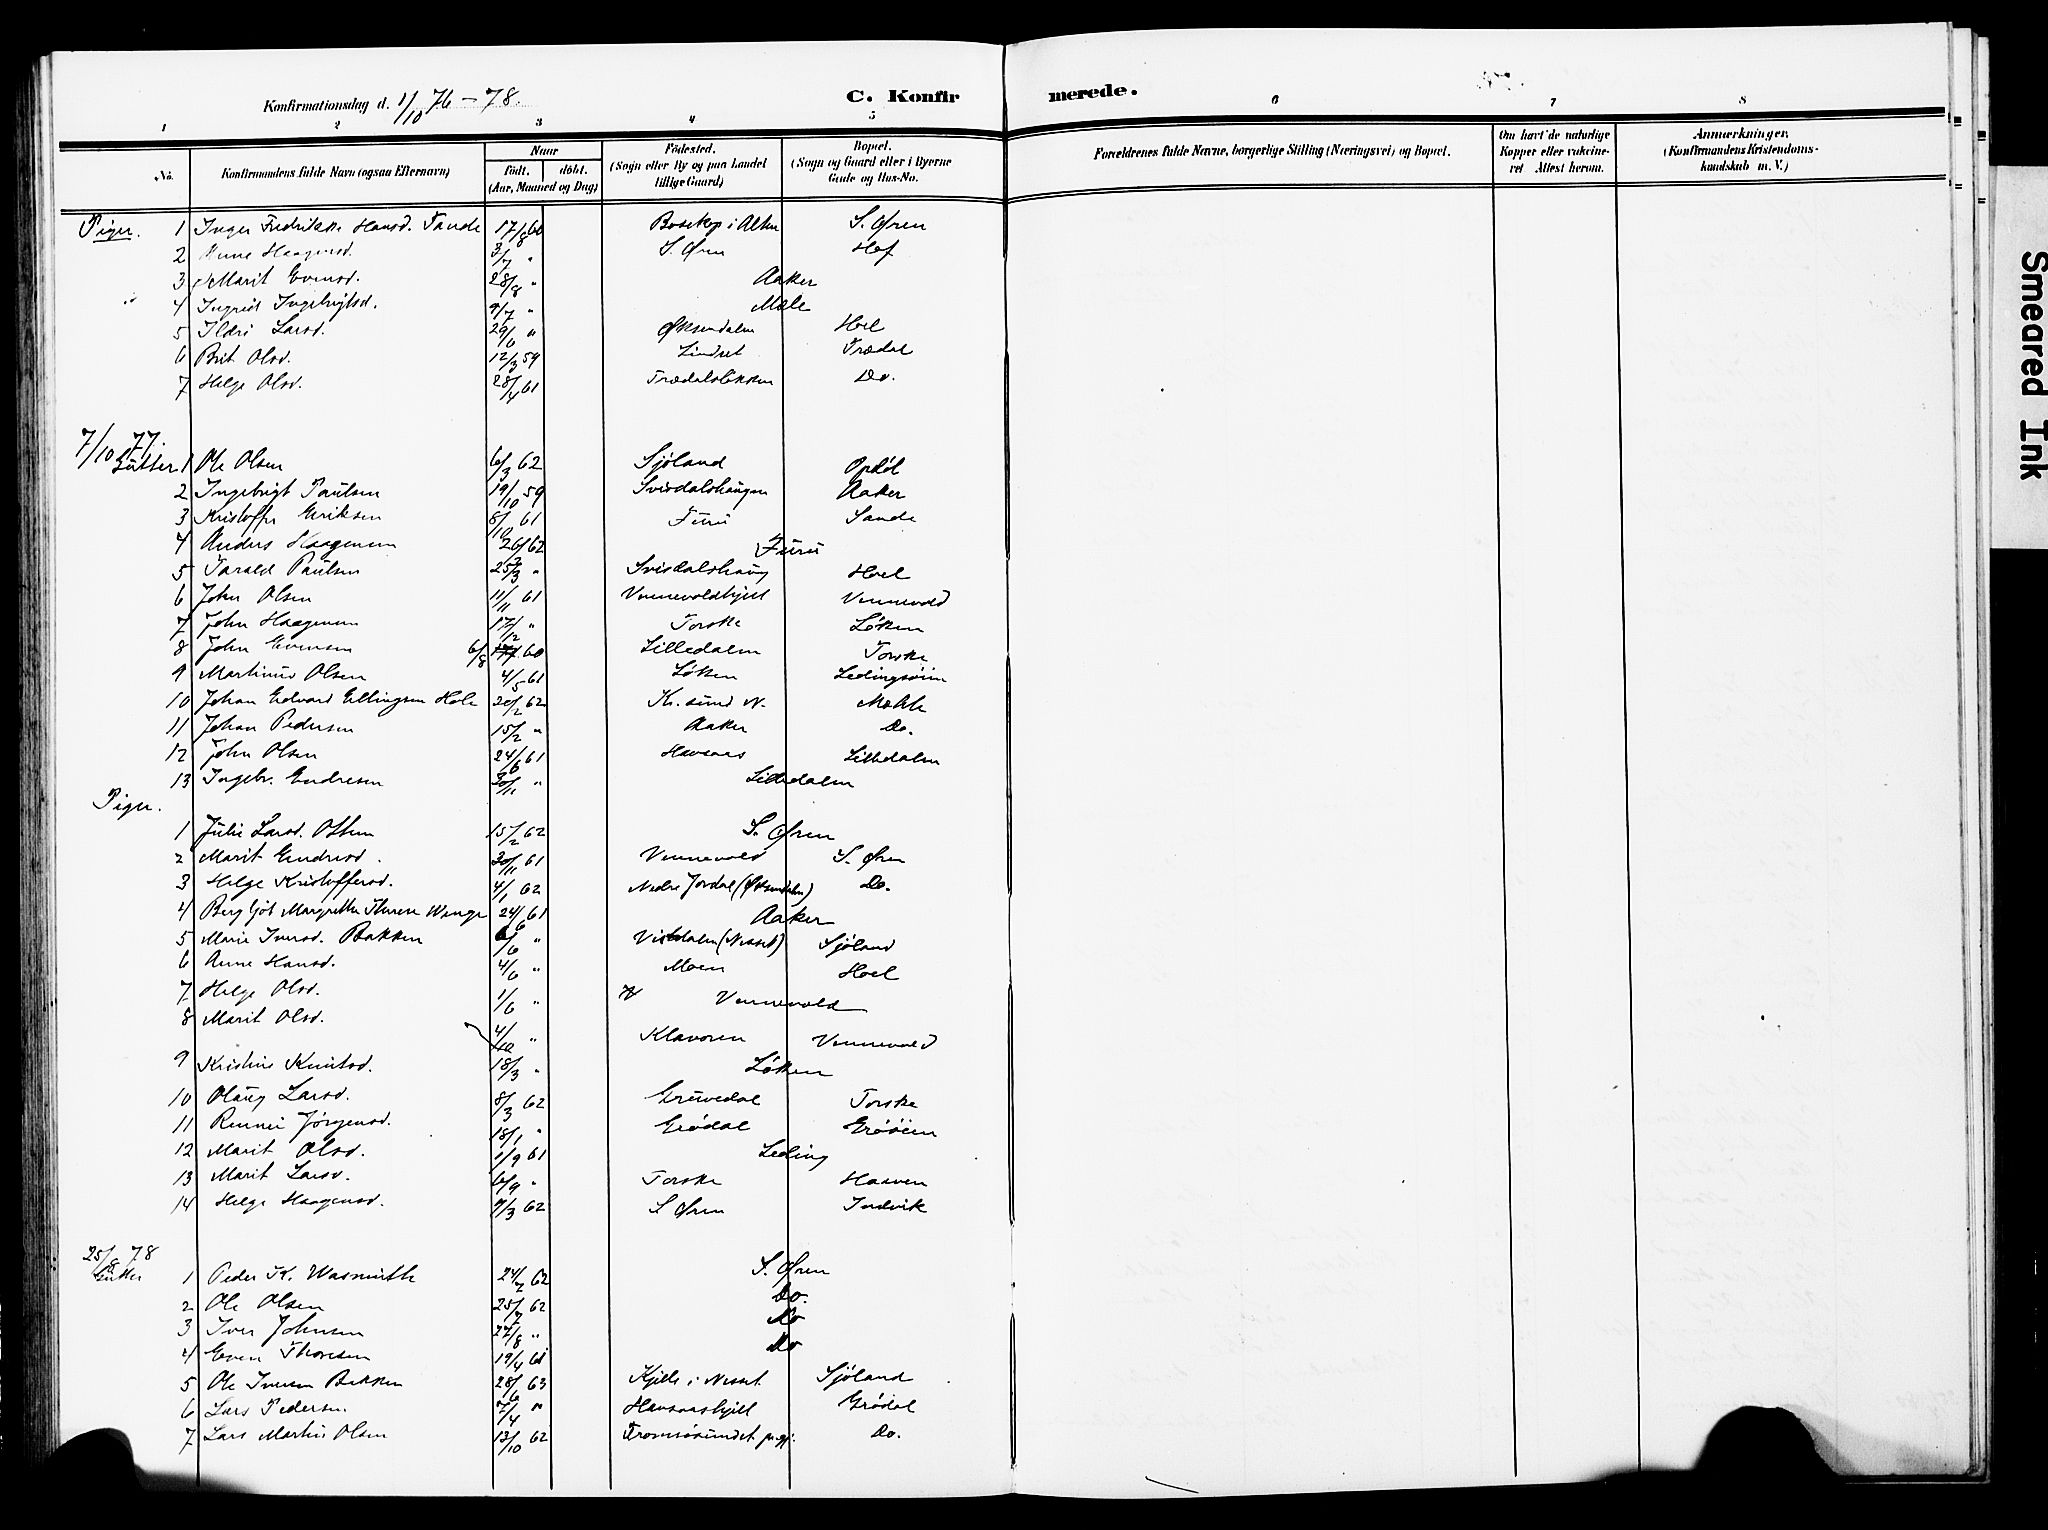 Konfirmationsdag d. 1/10 76-78. C. Konfirmerede.
1 2 3 4 5 6 7 8
No. Konfirmandens fulde Navn (ogsaa Efternavn) Naar født. døbt. (Aar, Maaned og Dag) Fødested. (Sogn eller By og paa Landet tillige Gaard) Bopæl. (Sogn og Gaard eller i Byerne Gade og Hus-No. Forældrenes fulde Navne, borgerlige Stilling (Næringsvei) og Bopæl. Om havt de naturlige Kopper eller vaccineret Attest herom. Anmærkninger. (Konfirmandens Kristendomskundskab m. V.)
Piger. 1 Inger Fredrikke Hansd. Tande 17/8 60 Bosekop i Alten S. Øren
2 Anne Haagensd. 3/7 " S. Øren Hof
3 Marit Evensd. 28/8 " Aaker
4 Ingrid Ingebrigtsd. 9/7 " Mæle
5 Ildri Larsd. 29/6 " Øksendalen Hoel
6 Brit Olsd. 12/3 59 Lindset Trædal
7 Helge Olsd. 28/4 61 Trædalsløkken Do.
7/10 77.
Gutter 1 Ole Olsen 6/3 62 Sjöland Opdöl
2 Ingebrigt Paulsen 19/10 59 Svisdalshaugen Aaker
3 Kristoffer Eriksen 8/10 61 Furu Sande
4 Anders Haagensen 26/2 62 Furu
5 Tarald Paulsen 25/3 " Svisdalshaug Hoel
6 John Olsen 11/11 61 Vennevoldhjell Vennevold
7 John Haagensen 17/12 " Torske Løken
8 John Evensen 6/8 60 Lilledalen Torske
9 Martinus Olsen 4/5 61 Løken Ledingsöien
10 Johan Edvard Ellingsen Hole 20/2 62 Kr. sund N. Mæhle
11 Johan Pedersen 15/2 " Aaker Do.
12 John Olsen 24/6 61 Havsaas Lilledalen
13 Ingebr. Endresen 30/11 " Lilledalen
Piger.
1 Julie Larsd. Ottem 15/2 62 S. Øren
2 Marit Endresd. 30/11 61 Vennevold S. Øren
3 Helge Kristoffersd. 4/1 62 Nedre Jordal (Øksendalen) Do.
4 Bergljöt Margrethe Thrane Wenge 24/6 61 Aaker
5 Marie Iversd. Bakken 6/6 " Vistdalen (Nesset) Sjöland
6 Anne Hansd. 4/6 " Moen Hoel
7 Helge Olsd. 1/6 " Vennevold
8 Marit Olsd. 4/10 " Klavoren Vennevold
9 Kristine Knutsd. 18/3 " Løken
10 Olaug Larsd. 8/3 62 Gruvedal Torske
11 Rennei Jørgensd. 18/1 " Grødal Grøöien
12 Marit Olsd. 1/9 61 Leding
13 Marit Larsd. 6/9 " Torske Haaven
14 Helge Haagensd. 9/3 62 S Øren Indvik
25/8 78
Gutter 1 Peder K. Wasmuth 24/2 62 S. Øren
2 Ole Olsen 25/7 62 Do.
3 Iver Johnsen 27/8 " Do
4 Even Thoresen 19/4 61 Do
5 Ole Iversen Bakken 28/6 63 Kjelle i Nesset Sjöland
6 Lars Pedersen 7/4 " Havsaashjell Grødal
7 Lars Martin Olsen 13/10 62 Tromsösundet pr.gj. Do.
Smeared Ink